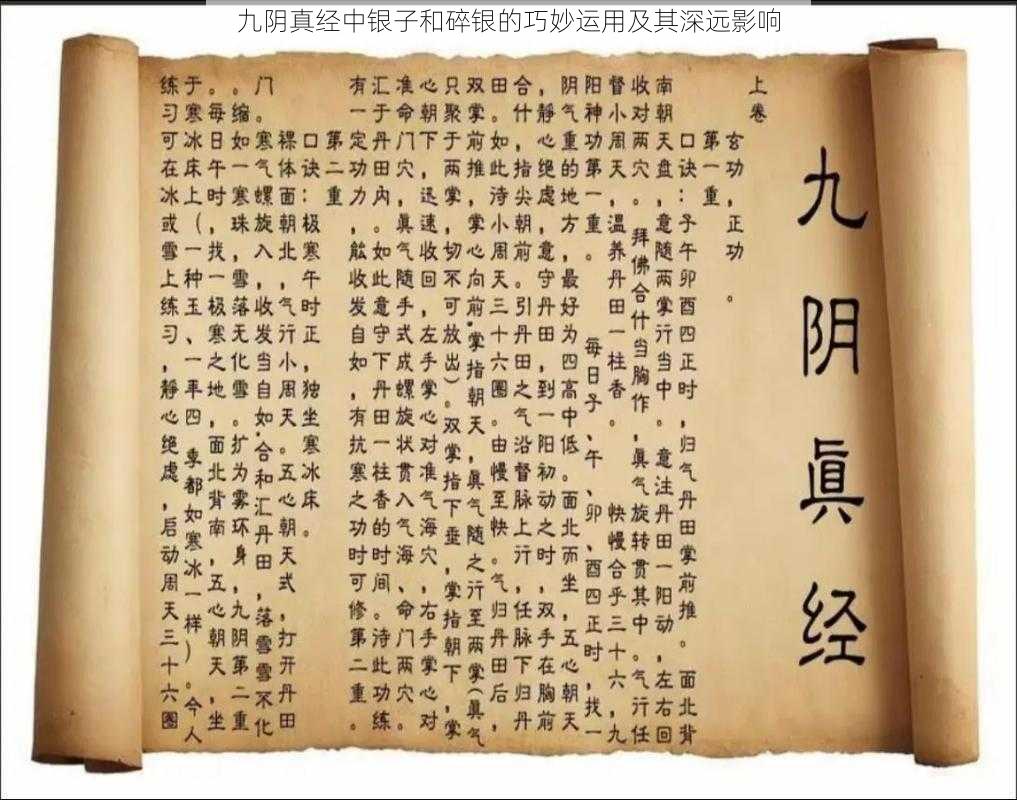 九阴真经中银子和碎银的巧妙运用及其深远影响
九阴眞经
上卷
玄功，正功。
第一重，
口诀：子午卯酉四正时，归气丹田掌前推。面北背
南朝天盘，意随两掌行当中。意注丹田一阳动，左右回
收对两穴。拜佛合什当胸作，眞气旋转贯其中。气行任
督小周天，温养丹田一柱香。快慢合乎三十六，九
阳神功第一重。每日子、午、卯、酉四正时，找一
阴气重的地方，最好为四高中低。面北而坐，五心朝天
，静心绝虑，意守丹田，到一阳初动之时，双手在胸前
合什，指尖朝前。引丹田之气沿督脉上行，任脉下归丹
田。如此，待小周天三十六圈。由慢至快。气归丹田后，
双掌前推，掌心向前.掌指朝天，眞气随之行至两掌(眞气
只聚于两掌，切不可放出)。双掌指下垂，掌指朝下，掌
心朝下，迅速收回，左手掌心对准气海穴，右手掌心对
准命门穴，眞气随手式成螺旋状贯入气海、命门两穴。
汇于丹田内。如此意守下丹田一柱香的时间。待此功练
有一定功力，能收发自如，有抗寒之功时可修第二重。
第二重
口诀：极寒午时正，独坐寒冰床。
裸体面朝北，气行小周天。五心朝天式，打开丹田
门。寒气螺旋入，收发当自如.合和汇丹田，落雪雪不化
。缩如一寒珠，雪落无化雪。扩为雾环身，九阴第二重
。每日午时，找一极寒之地，面北背南，五心朝天，坐
于寒冰床上(一种玉、一年四季都如寒冰一样)。今人
练习可在冰或雪上练习，静心绝虑，启动周天三十六圈